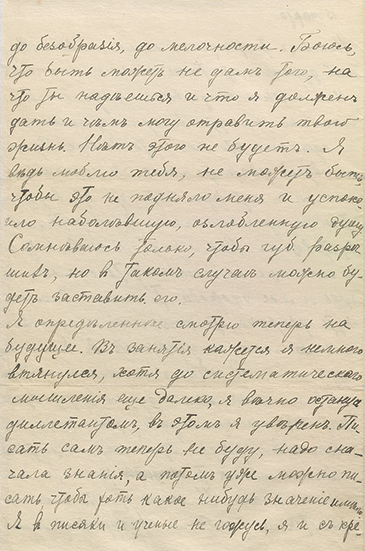 до безобразія, до мелочности. Боюсь,
что быть можетъ не дамъ того, на
что ты надѣешься и что я долженъ
дать и чѣмъ могу отравить твою
жизнь. Нѣтъ этого не будетъ. Я
вѣдь люблю тебя, не можетъ быть,
чтобы это не подняло меня и успоко
ило наболѣвшую, озлобленную душу
Сомнѣваюсь только, чтобы губ. разрѣ
шилъ, но въ такомъ случаѣ можно бу-
детъ заставить его.
Я опредѣленнѣе смотрю теперь на
будущее. Въ занятія кажется я немного
втянулся, хотя до систематическаго
мышленія еще далеко, я вѣчно останусь
диллетантомъ, въ этомъ я увѣренъ. Пи-
сать самъ теперь не буду, надо сна-
чала знанія, а потомъ уже можно пи-
сать чтобы хоть какое нибудь значеніе имѣло
Я въ писаки и ученые не гожусь, я и съ кре-